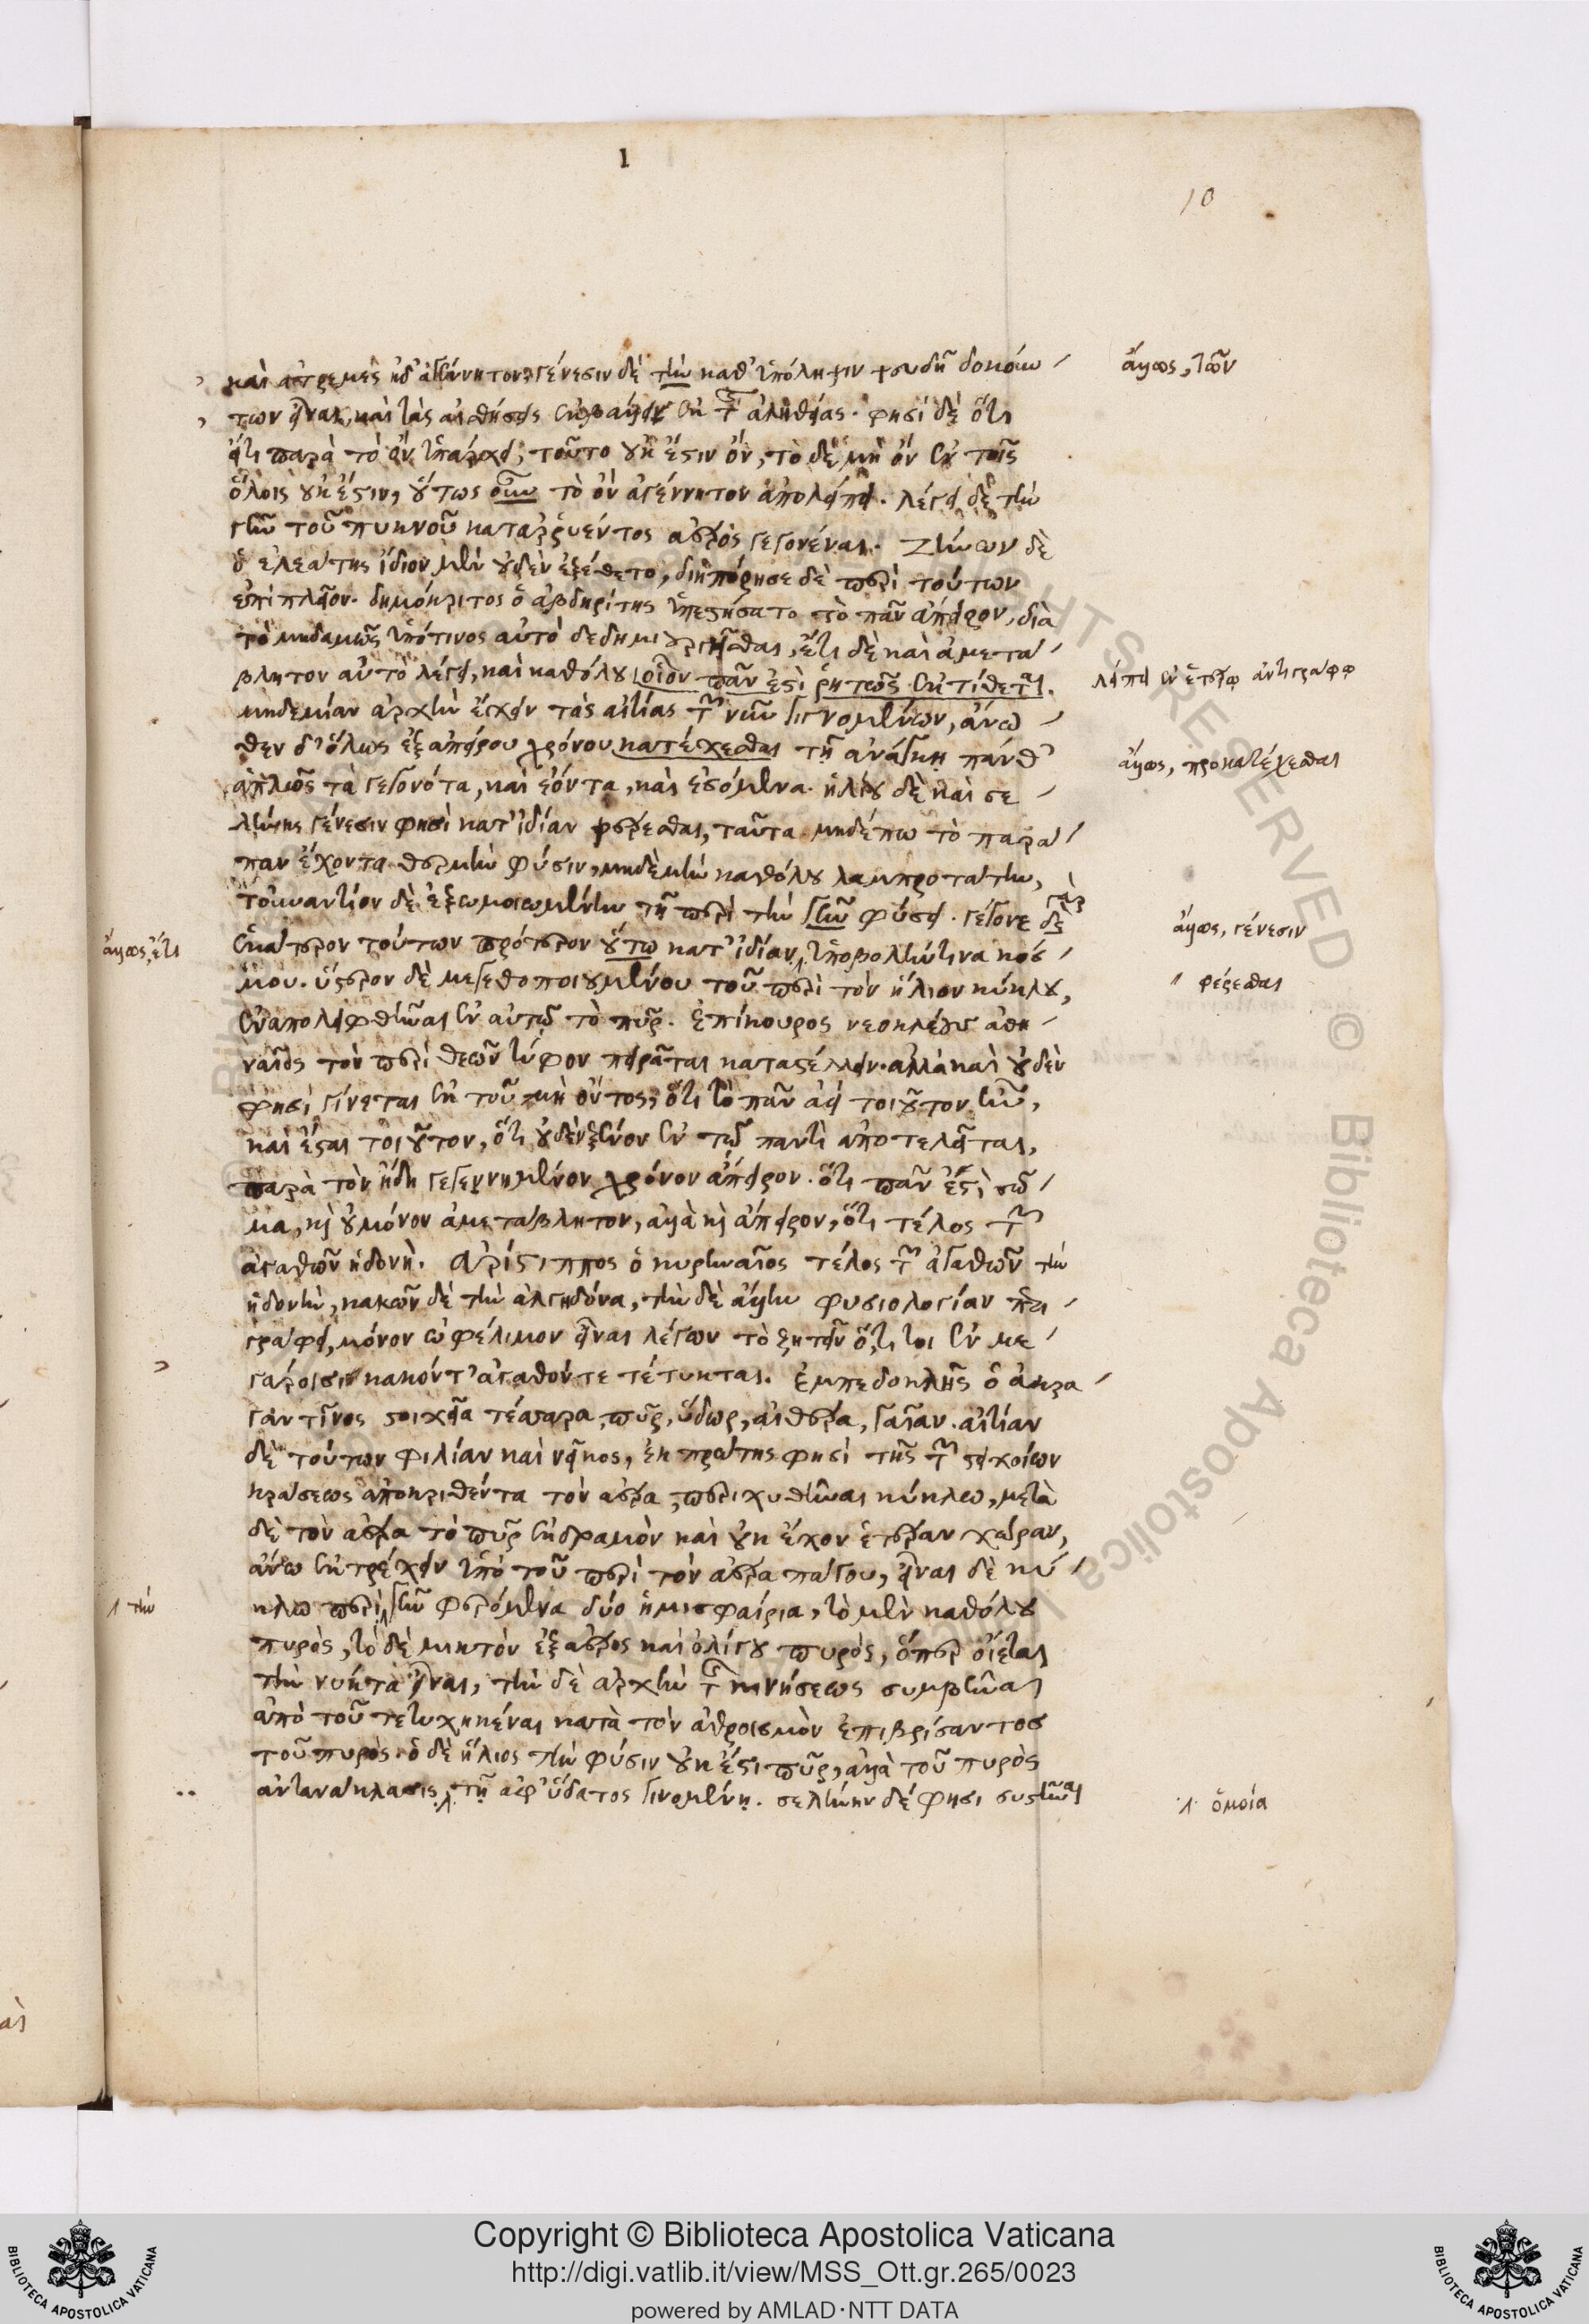 1
10
καὶ ἀτρεμὲς ἠδ' ἀγέννητον. γένεσιν δὲ τὴν καθ' ὑπόληψιν ψευδῆ δοκούν
των εἶναι, καὶ τὰς αἰσθήσεις ἐκβάλλει ἐκ τῆς ἀληθείας. φησὶ δὲ ὅτι
εἴτι παρὰ τὸ ὂν ὑπάρχει, τοῦτο οὐκ ἔστιν ὄν, τὸ δὲ μὴ ὂν ἐν τοῖς
ὅλοις οὐκ ἔστιν, οὕτως οὖν τὸ ὂν ἀγέννητον ἀπολείπει. λέγει δὲ τὴν
γῆν τοῦ πυκνοῦ καταρρυέντος ἀέρος γεγονέναι. Ζήνων δὲ
ὁ ἐλεάτης ἴδιον μὲν οὐδὲν ἐξέθετο, διηπόρησε δὲ περὶ τούτων
ἐπὶ πλεῖον. δημόκριτος ὁ ἀβδηρίτης ὑπεστήσατο τὸ πᾶν ἄπειρον, διὰ
τὸ μηδαμῶς ὑπό τινος αὐτὸ δεδημιουργῆσθαι, ἔτι δὲ καὶ ἀμετά
βλητον αὐτὸ λέγει, καὶ καθόλου οἷον πᾶν ἐστὶ ῥητῶς ἐκτίθεται.
μηδεμίαν ἀρχὴν ἔχειν τὰς αἰτίας τῶν νῦν γιγνομένων, ἄνω
θεν δ' ὅλως ἐξ ἀπείρου χρόνου κατέχεσθαι τῇ ἀνάγκῃ πάνθ'
ἁπλῶς τὰ γεγονότα, καὶ ἐόντα, καὶ ἐσόμενα. ἡλίου δὲ καὶ σε
λήνης γένεσιν φησὶ κατ' ἰδίαν φέρεσθαι, ταῦτα μηδέπω τὸ παρά
παν ἔχοντα θερμὴν φύσιν, μηδὲ μὴν καθόλου λαμπροτάτην,
τοὐναντίον δὲ ἐξωμοιωμένην τῇ περὶ τὴν γῆν φύσει. γέγονε δὲ γὰρ
ἑκάτερον τούτων πρότερον οὕτω κατ' ἰδίαν ὑποβολήν τινα κόσ
μου. ὕστερον δὲ μεγεθοποιουμένου τοῦ περὶ τὸν ἥλιον κύκλου,
ἐναπολειφθῆναι ἐν αὐτῷ τὸ πῦρ. Ἐπίκουρος νεοκλέους ἀθη
ναῖος τὸν περὶ θεῶν τύφον πειρᾶται καταστέλλειν. ἀλλὰ καὶ οὐδὲν
φησὶ γίνεται ἐκ τοῦ μὴ ὄντος, ὅτι τὸ πᾶν ἀεὶ τοιοῦτον ἦν,
καὶ ἔσται τοιοῦτον, ὅτι οὐδὲν ξένον ἐν τῷ παντὶ ἀποτελεῖται,
παρὰ τὸν ἤδη γεγεννημένον χρόνον ἄπειρον. ὅτι πᾶν ἐστὶ σῶ
μα, καὶ οὐ μόνον ἀμετάβλητον, ἀλλὰ καὶ ἄπειρον, ὅτι τέλος τῶν
ἀγαθῶν ἡδονὴ. Ἀρίστιππος ὁ κυρηναῖος τέλος τῶν ἀγαθῶν τὴν
ἡδονὴν, κακῶν δὲ τὴν ἀλγηδόνα, τὴν δὲ ἄλλην φυσιολογίαν περι
γράφει, μόνον ὠφέλιμον εἶναι λέγων τὸ ζητεῖν ὅ,τι τοι ἐν με
γάροισι κακόντ' ἀγαθόντε τέτυκται. Ἐμπεδοκλῆς ὁ ἀκρα
γαντῖνος στοιχεῖα τέσσαρα, πῦρ, ὕδωρ, αἰθέρα, γαῖαν. αἰτίαν
δὲ τούτων φιλίαν καὶ νεῖκος, ἐκ πρώτης φησὶ τῆς τῶν στοιχείων
κράσεως ἀποκριθέντα τὸν ἀέρα, περιχυθῆναι κύκλῳ, μετὰ
δὲ τὸν ἀέρα τὸ πῦρ ἐκδραμὸν καὶ οὐκ ἔχον ἑτέραν χώραν,
ἄνω ἐκτρέχειν ὑπὸ τοῦ περὶ τὸν ἀέρα πάγου, εἶναι δὲ κύ
κλῳ περὶ γῆν φερόμενα δύο ἡμισφαίρια, τὸ μὲν καθόλου
πυρὸς, τὸ δὲ μικτὸν ἐξ ἀέρος καὶ ὀλίγου πυρὸς, ὅπερ οἴεται
τὴν νύκτα εἶναι, τὴν δὲ ἀρχὴν τῆς κινήσεως συμβῆναι
ἀπὸ τοῦ τετυχηκέναι κατὰ τὸν ἀθροισμὸν ἐπιβρίσαντος
τοῦ πυρός. ὁ δὲ ἥλιος τὴν φύσιν οὐκ ἔστι πῦρ, ἀλλὰ τοῦ πυρὸς
ἀντανάκλασις, τῇ ἀφ' ὕδατος γινομένῃ. σελήνην δέ φησι συστῆναι
ἄλλως, τῶν
λείπει ἐν ἑτέρῳ ἀντιγράφῳ
ἄλλως, προκατέχεσθαι
ἄλλως, γένεσιν
φέρεσθαι
ἄλλως, ἔτι
τὴν
ὁμοία
Copyright © Biblioteca Apostolica Vaticana
http://digi.vatlib.it/view/MSS_Ott.gr.265/0023
powered by AMLAD·NTT DATA